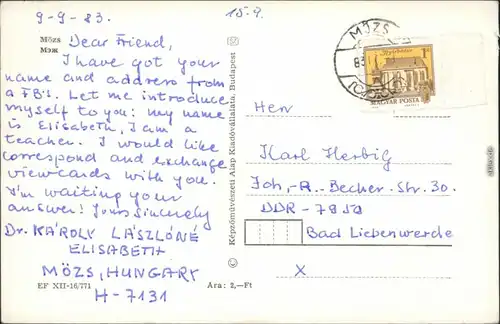 9-9-83.
15.9.
Mözs
Мэж
Dear Friend,
I have got your
name and address from
a FB's. Let me introduce
myself to you: my name
is Elisabeth, I am a
teacher. I would like
correspond and exchange
viewcards with you.
I'm waiting your
answer! Yours Sincerely
Dr. KÁROLY LÁSZLÓNÉ
ELISABETH
MÖZS, HUNGARY
H-7131
EF XII-16/771
Ara: 2,–Ft
© Képzőművészeti Alap Kiadóvállalata, Budapest
MÖZS
83
MAGYAR POSTA
Herr
Karl Herbig
Joh.-R.-Becher-Str. 30.
DDR-7950
Bad Liebenwerde
X